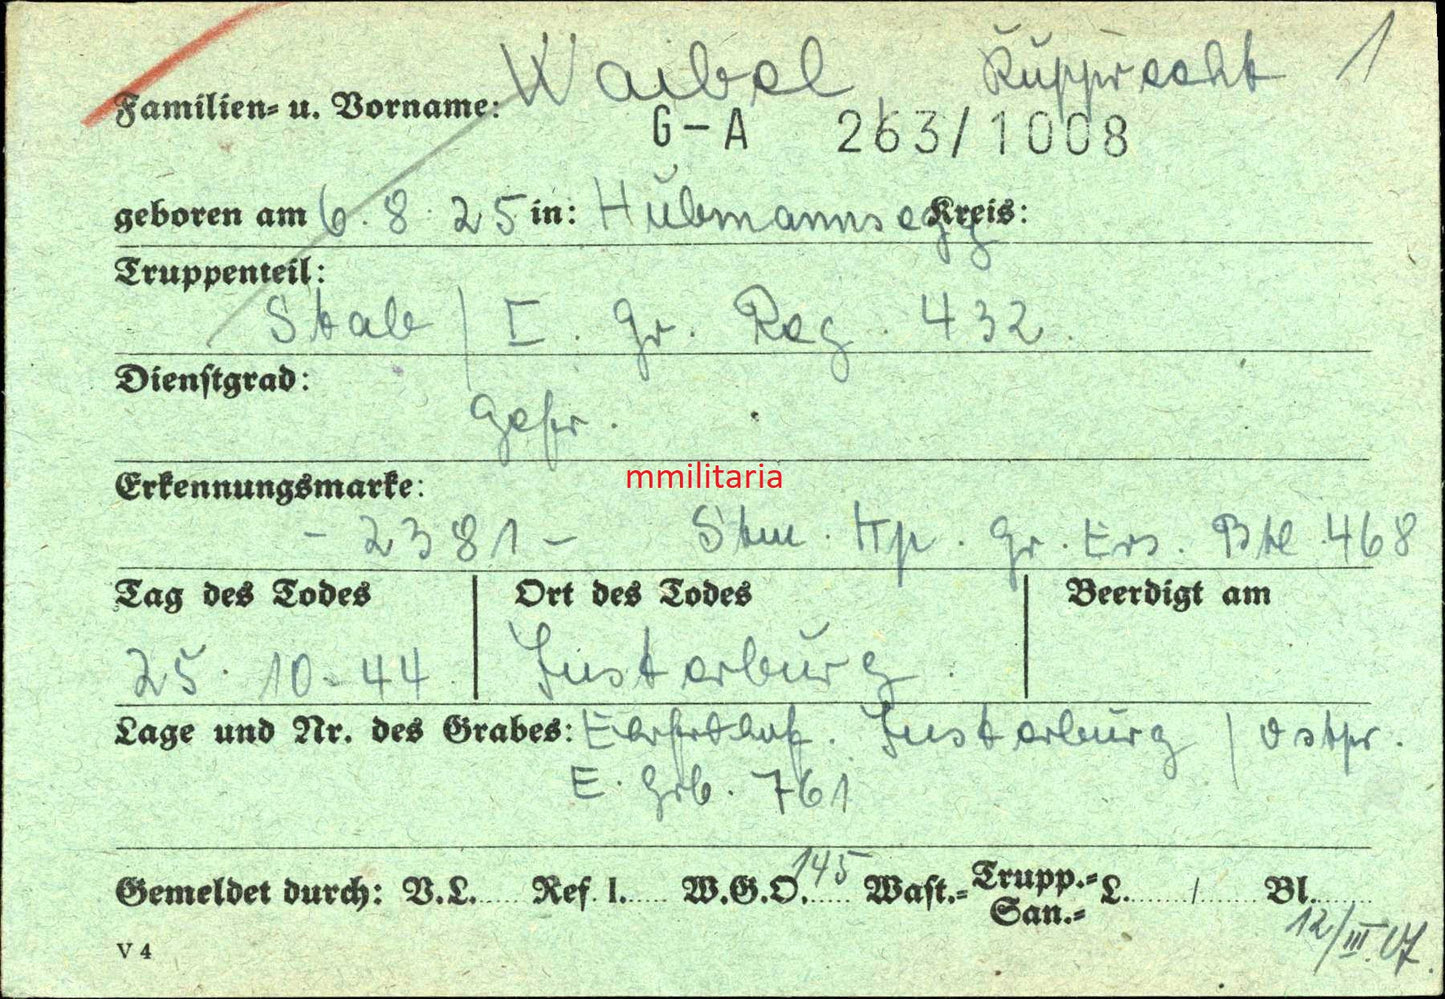 Familien= u. Vorname: Waibel Rupprecht 1
G-A 263/1008
geboren am 6. 8. 25 in: Hubmannsegg Kreis:
Truppenteil:
Stab / I. Gr. Reg. 432.
Dienstgrad:
Gefr.
mmilitaria
Erkennungsmarke:
- 2381 - Stm. Kp. Gr. Ers. Btl. 468
Tag des Todes Ort des Todes Beerdigt am
25. 10. 44 Insterburg.
Lage und Nr. des Grabes: Ehrfrdhf. Insterburg / Ostpr.
E. Grb. 761
Gemeldet durch: V.L. Ref. I. W.G.O. 145 Wast.= Trupp.= San.= L. / Bl.
12/III.
V 4